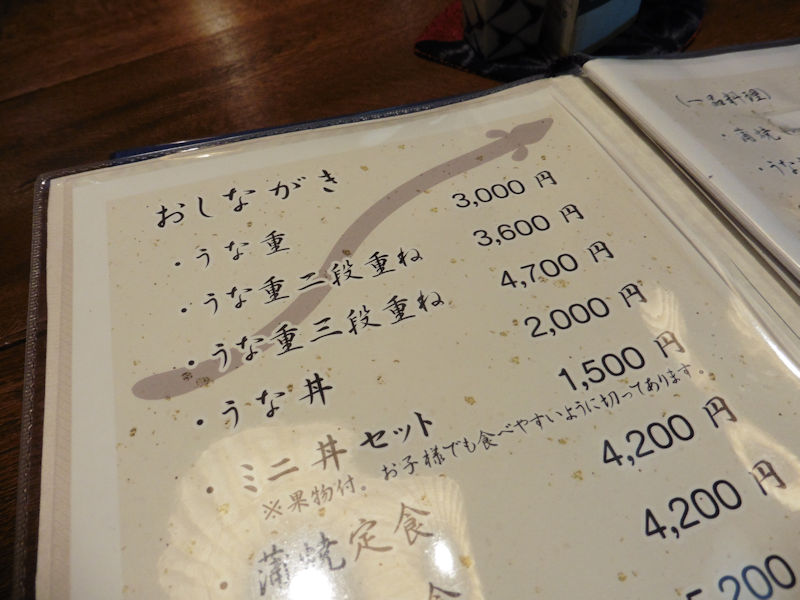 おしながき
・うな重 3,000 円
・うな重二段重ね 3,600 円
・うな重三段重ね 4,700 円
・うな丼 2,000 円
・ミニ丼セット 1,500 円
※果物付。お子様でも食べやすいように切ってあります。
・蒲焼定食 4,200 円
食 4,200 円
5,200
(一品料理)
・蒲焼
・うな